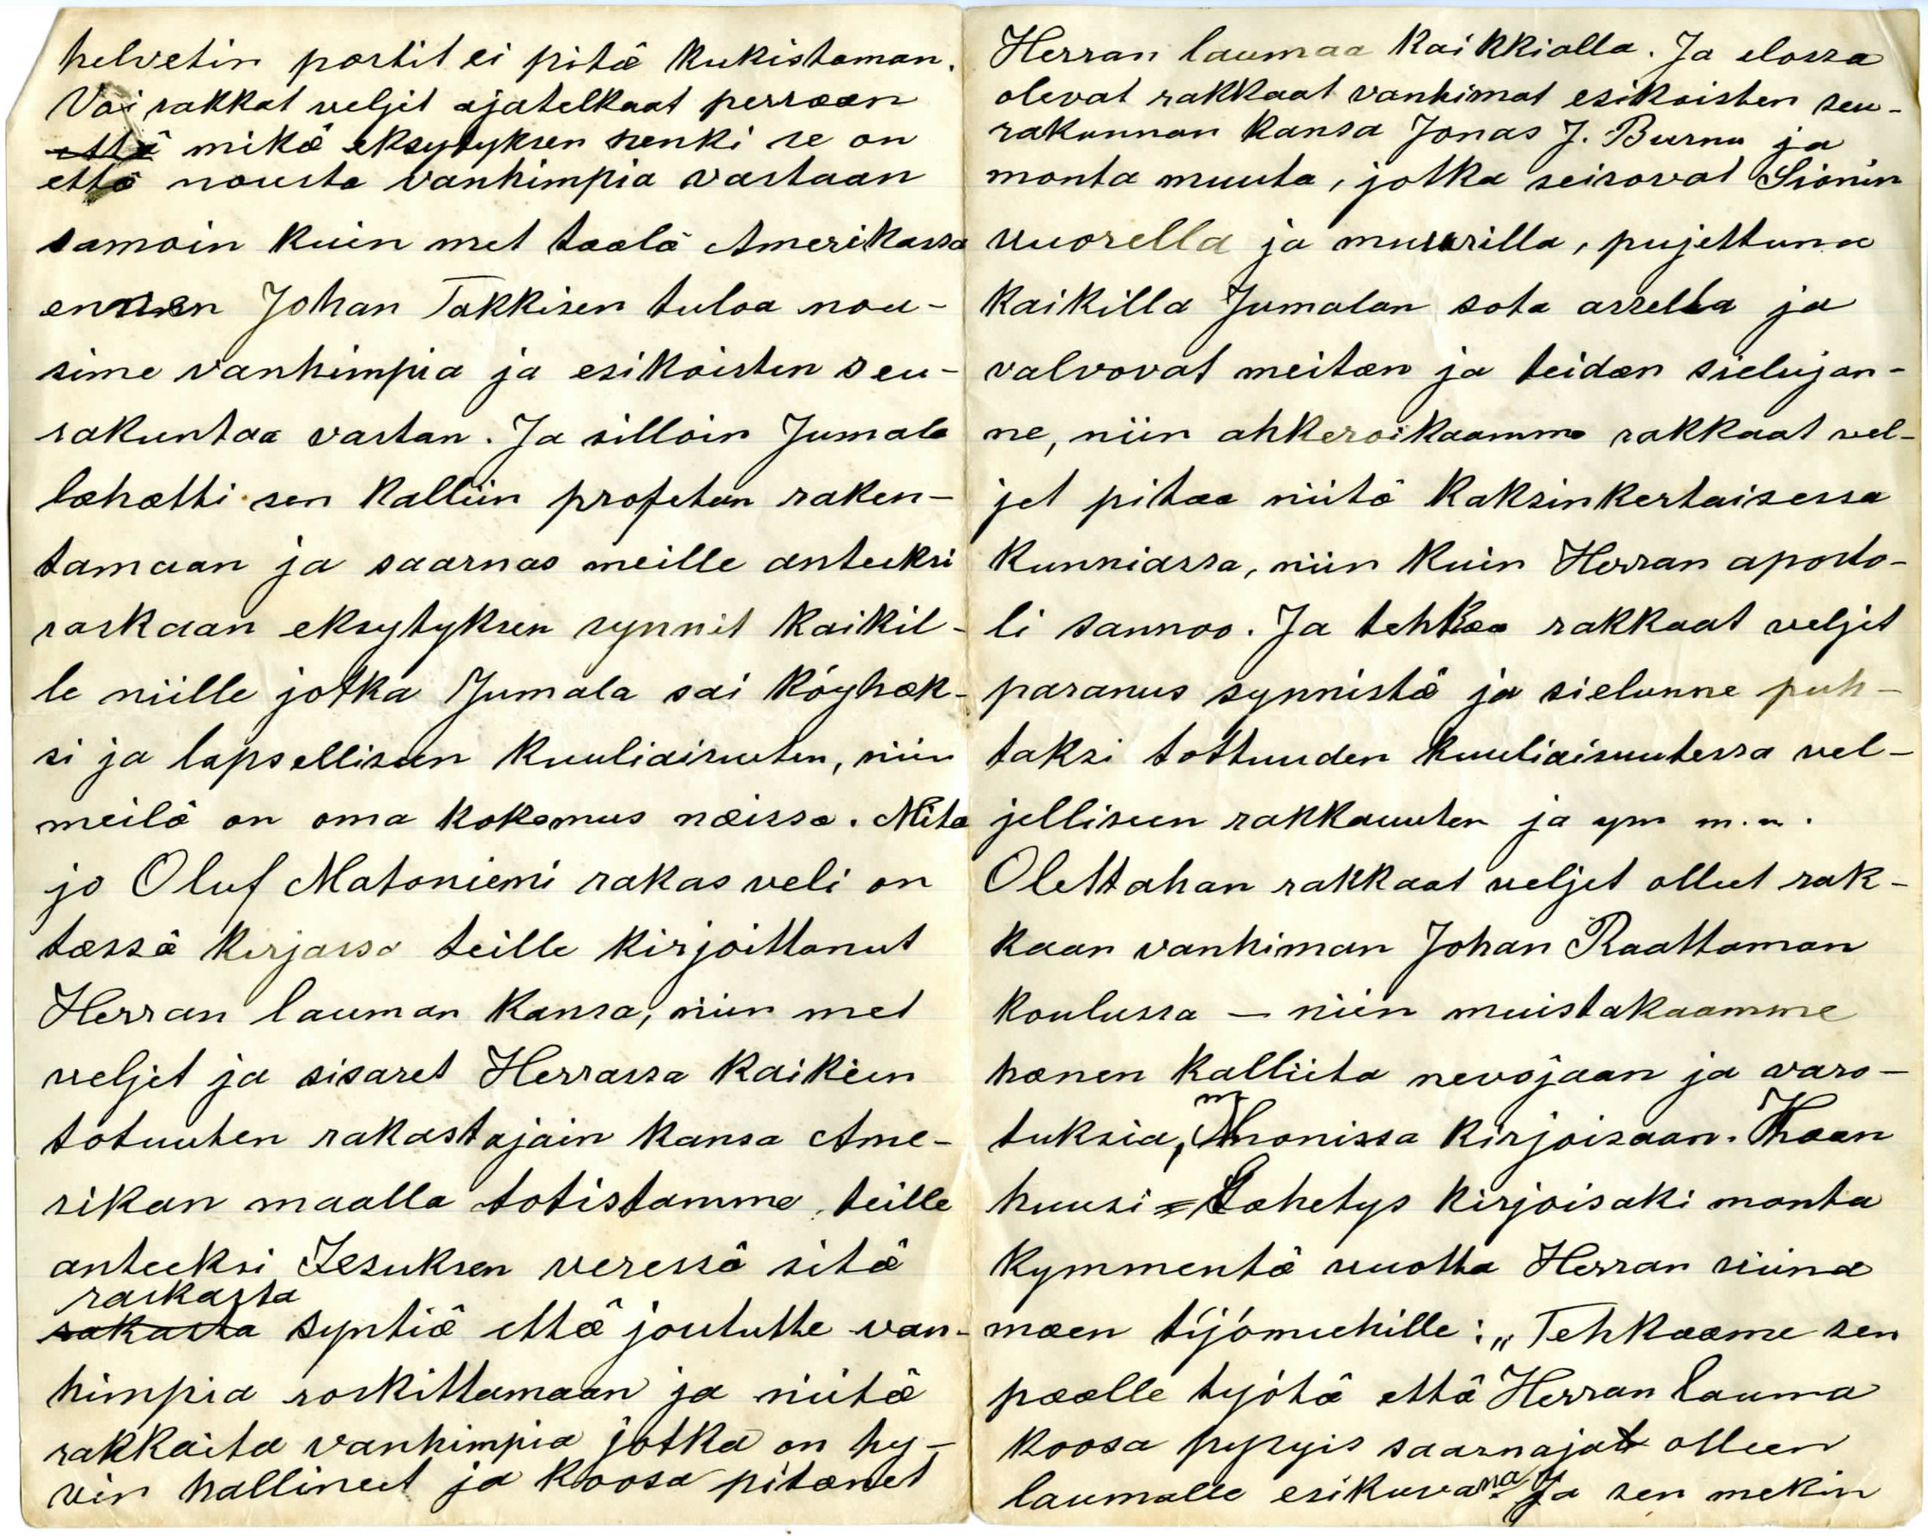 helvetin portit ei pitä kukistaman.
Voi rakkat veljit ajatelkaat perrään
että mikä eksytyksen henki se on
että nousta vanhimpia vastaan
samoin kuin met taalä Amerikassa
ennen Johan Takkisen tuloa nou-
sime vanhimpia ja esikoisten seu-
rakuntaa vastan. Ja silloin Jumala
læhætti sen kalliin profetan raken-
tamaan ja saarnas meille anteeksi
raskaan eksytyksen synnit kaikil-
le niille jotka Jumala sai köyhæk-
si ja lapsellisen kuuliaisuuten, niin
meilä on oma kokemus næissa. Mitä
jo Oluf Matoniemi rakas veli on
tæssä kirjassa teille kirjoittanut
Herran lauman kansa, niin met
veljet ja sisaret Herrassa kaikein
totuuten rakastajain kansa Ame-
rikan maalla totistamme teille
anteeksi Jesuksen veressä sitä
raskasta
rakasta syntiä että joututte van-
himpia roskittamaan ja niitä
rakkaita vanhimpia jotka on hy-
vin hallineet ja koosa pitænet
Herran laumaa kaikkialla. Ja elossa
olevat rakkaat vanhimat esikoisten seu-
rakunnan kansa Jonas J. Burnu ja
monta muuta, jotka seisovat Sionin
vuorella ja muurilla, pujettuna
kaikilla Jumalan sota assella ja
valvovat meitæn ja teidæn sielujan-
ne, niin ahkeroikaamme rakkaat vel-
jet pitaa niitä kaksinkertaisessa
kunniassa, niin kuin Herran aposto-
li sannoo. Ja tehkæa rakkaat veljet
paranus synnistä ja sielunne puh-
taksi tottuuden kuuliaisuutessa vel-
jelliseen rakkauuten ja ym m.m.
Olettahan rakkaat veljet olleet rak-
kaan vanhiman Johan Raattaman
koulussa — niin muistakaamme
hænen kalliita nevojaan ja varo-
tuksia, monissa kirjoisaan. Hæn
huusi Læhetys kirjoisaki monta
kymmentä vuotta Herran viina
mæen tíjómiehille: „Tehkaame sen
pæælle tyótä että Herran lauma
koosa pysyis saarnajat olleen
laumalle esikuvana. Ja sen mekin